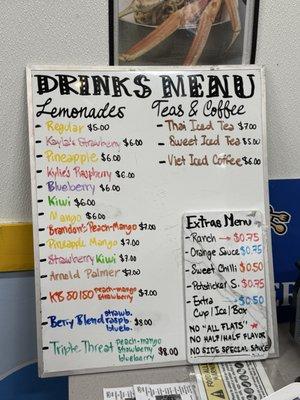 DRINKS MENU
Lemonades
- Regular $5.00
- Kayla's Strawberry $6.00
- Pineapple $6.00
- Kylie's Raspberry $6.00
- Blueberry $6.00
- Kiwi $6.00
- Mango $6.00
- Brandon's Peach-Mango $7.00
- Pineapple Mango $7.00
- Strawberry Kiwi $7.00
- Arnold Palmer $7.00
- K's 50/50 peach-mango strawberry $7.00
- Berry Blend strawb. raspb. blueb. $8.00
- Triple Threat peach-mango strawberry blueberry $8.00
Teas & Coffee
- Thai Iced Tea $7.00
- Sweet Iced Tea $5.00
- Viet Iced Coffee $6.00
Extras Menu
- Ranch → $0.75
- Orange Sauce $0.75
- Sweet Chilli $0.50
- Potsticker S. $0.75
- Extra → $0.50
Cup | Ice | Box
NO "ALL FLATS"
NO HALF/HALF
NO SIDE SPECIAL SAUCE